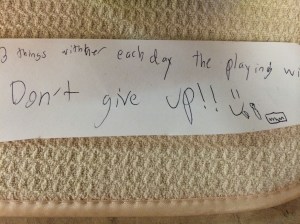 3 things with her each day the playing wi
Don't give up!!